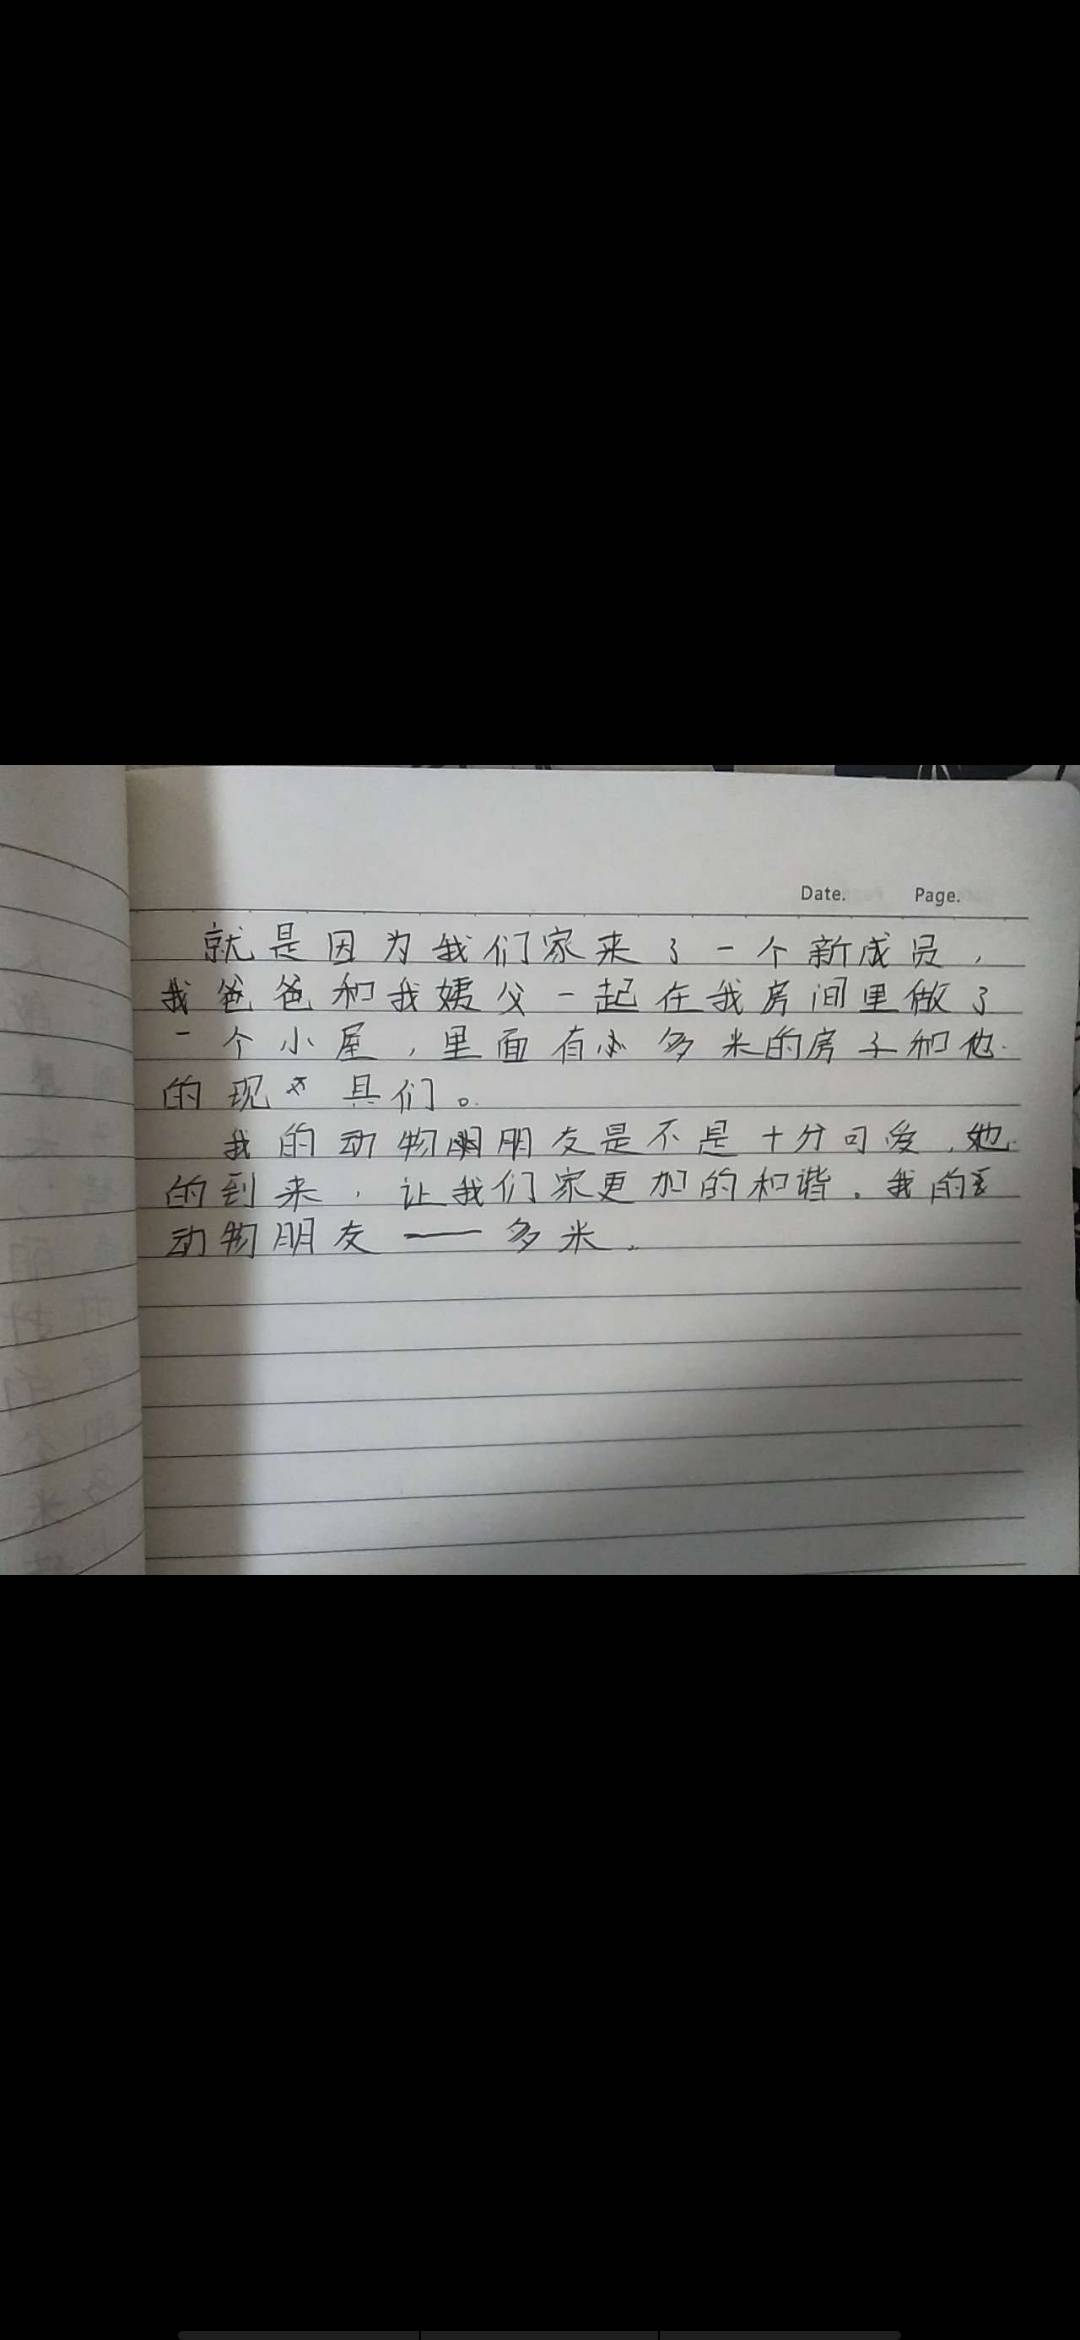 Date. Page.
就是因为我们家来了一个新成员，
我爸爸和我姨父一起在我房间里做了
一个小屋，里面有小多米的房子和他
的现具们。
我的动物朋友是不是十分可爱，她
的到来，让我们家更加的和谐。我的
动物朋友——多米。